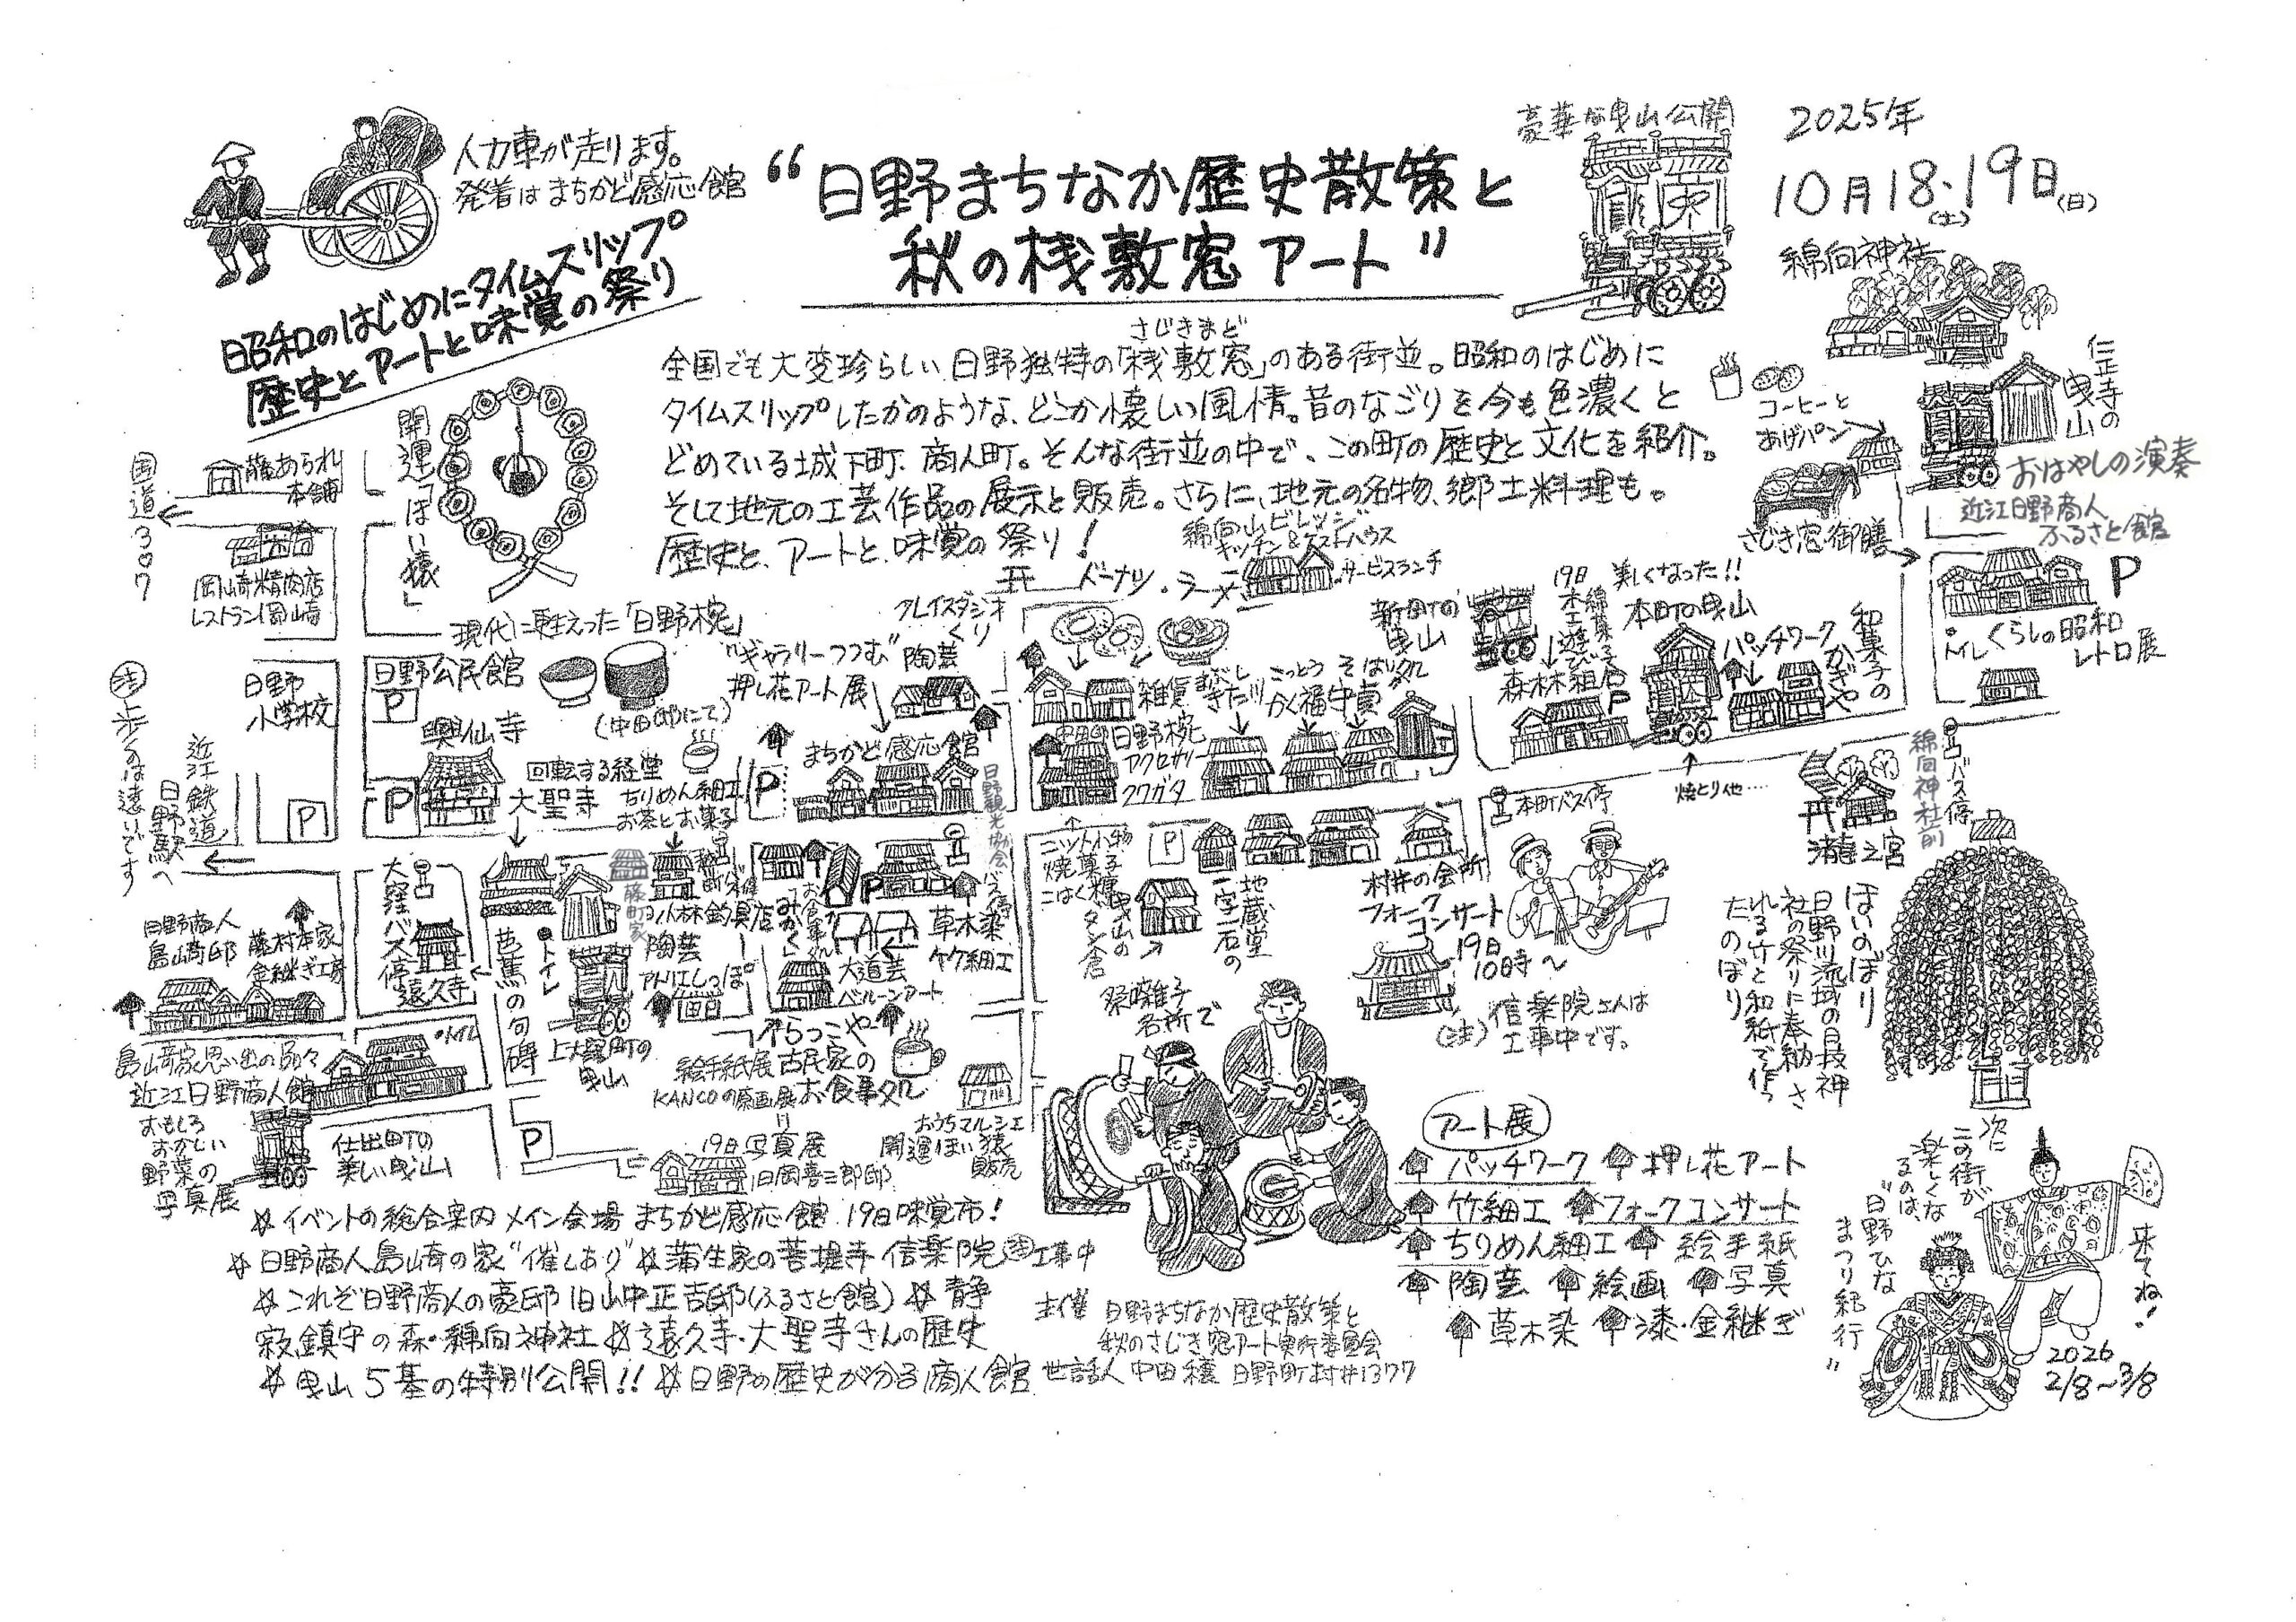 人力車が走ります。
発着はまちかど感応館
昭和のはじめにタイムスリップ
歴史とアートと味覚の祭り
“日野まちなか歴史散策と
秋の桟敷窓アート”
豪華な曳山公開
2025年
10月18・19日
(土)
(日)
綿向神社
さじきまど
全国でも大変珍らしい日野独特の「桟敷窓」のある街並。昭和のはじめに
タイムスリップしたかのような、どこか懐しい風情。昔のなごりを今も色濃くと
どめている城下町、商人町。そんな街並の中で、この町の歴史と文化を紹介。
そして地元の工芸作品の展示と販売。さらに、地元の名物、郷土料理も。
歴史と、アートと、味覚の祭り!
仁正寺の
曳山
おはやしの演奏
コーヒーと
あげパン
近江日野商人
ふるさと館
さじき窓御膳
P
トイレ
くらしの昭和
レトロ展
国道307
藤あられ
本舗
岡崎精肉店
レストラン岡崎
開運「ほい猿」
現代に甦えった「日野椀」
(中田邸にて)
日野公民館
P
日野
小学校
興仙寺
P
P
回転する経堂
大聖寺
ちりめん細工
お茶とお菓子
P
“ギャラリーつつむ”陶芸
押し花アート展
プレイスタジオ
くり
まちかど感応館
日野観光協会バス停
綿向山ビレッジ
キッチン&ゲストハウス
サービスランチ
ドーナツ・ラーメン
雑貨
日野椀
アクロカリー
クワガタ
こっとう
かく福
そば処
中貞
新町の
曳山
19日
森林組合
P
美しくなった!!
本町の曳山
パッチワーク
和菓子の
かぎや
焼とり他……
本町バス停
綿向神社前
バス停
滝之宮
注歩くのは遠いです
近江鉄道
日野駅へ
大窪バス停
遠久寺
日野商人
島崎邸
藤村本家
金継ぎ工房
島崎家思い出の品々
近江日野商人館
おもしろ
おかしい
野菜の
写真展
トイレ
仕出町の
美しい曳山
芭蕉の句碑
トイレ
上大窪町の
曳山
小林釣具店
陶芸
アトリエしっぽ
P
草木染
竹細工
大道芸
バルーンアート
らっこや
絵手紙展
KANCOの原画展
古民家の
お食事処
P
19日写真展
旧岡喜三郎邸
おうちマルシェ
開運ほい猿
販売
ニット小物
焼菓子
こはく糖
曳山の
P
地蔵堂
村井の会所
フォーク
コンサート
19日
10時~
(注)信楽院さんは
工事中です。
祭囃子
名所で
ほいのぼり
日野川流域の日枝神
社の祭りに奉納さ
れる竹と和紙で作っ
たのぼり
アート展
パッチワーク 押し花アート
竹細工 フォークコンサート
ちりめん細工 絵手紙
陶芸 絵画 写真
草木染 漆・金継ぎ
次に
この街が
楽しくな
るのは、
“日野ひな
まつり紀行”
来てね!
2026
2/8~3/8
☆イベントの総合案内 メイン会場 まちかど感応館 19日味覚市!
☆日野商人島崎の家“催しあり”☆蒲生家の菩提寺 信楽院 注工事中
☆これぞ日野商人の豪邸 旧山中正吉邸(ふるさと館) ☆静
寂、鎮守の森・綿向神社 ☆遠久寺・大聖寺さんの歴史
☆曳山5基の特別公開!! ☆日野の歴史が分る商人館
主催 日野まちなか歴史散策と
秋のさじき窓アート実行委員会
世話人 中田穰 日野町村井1377